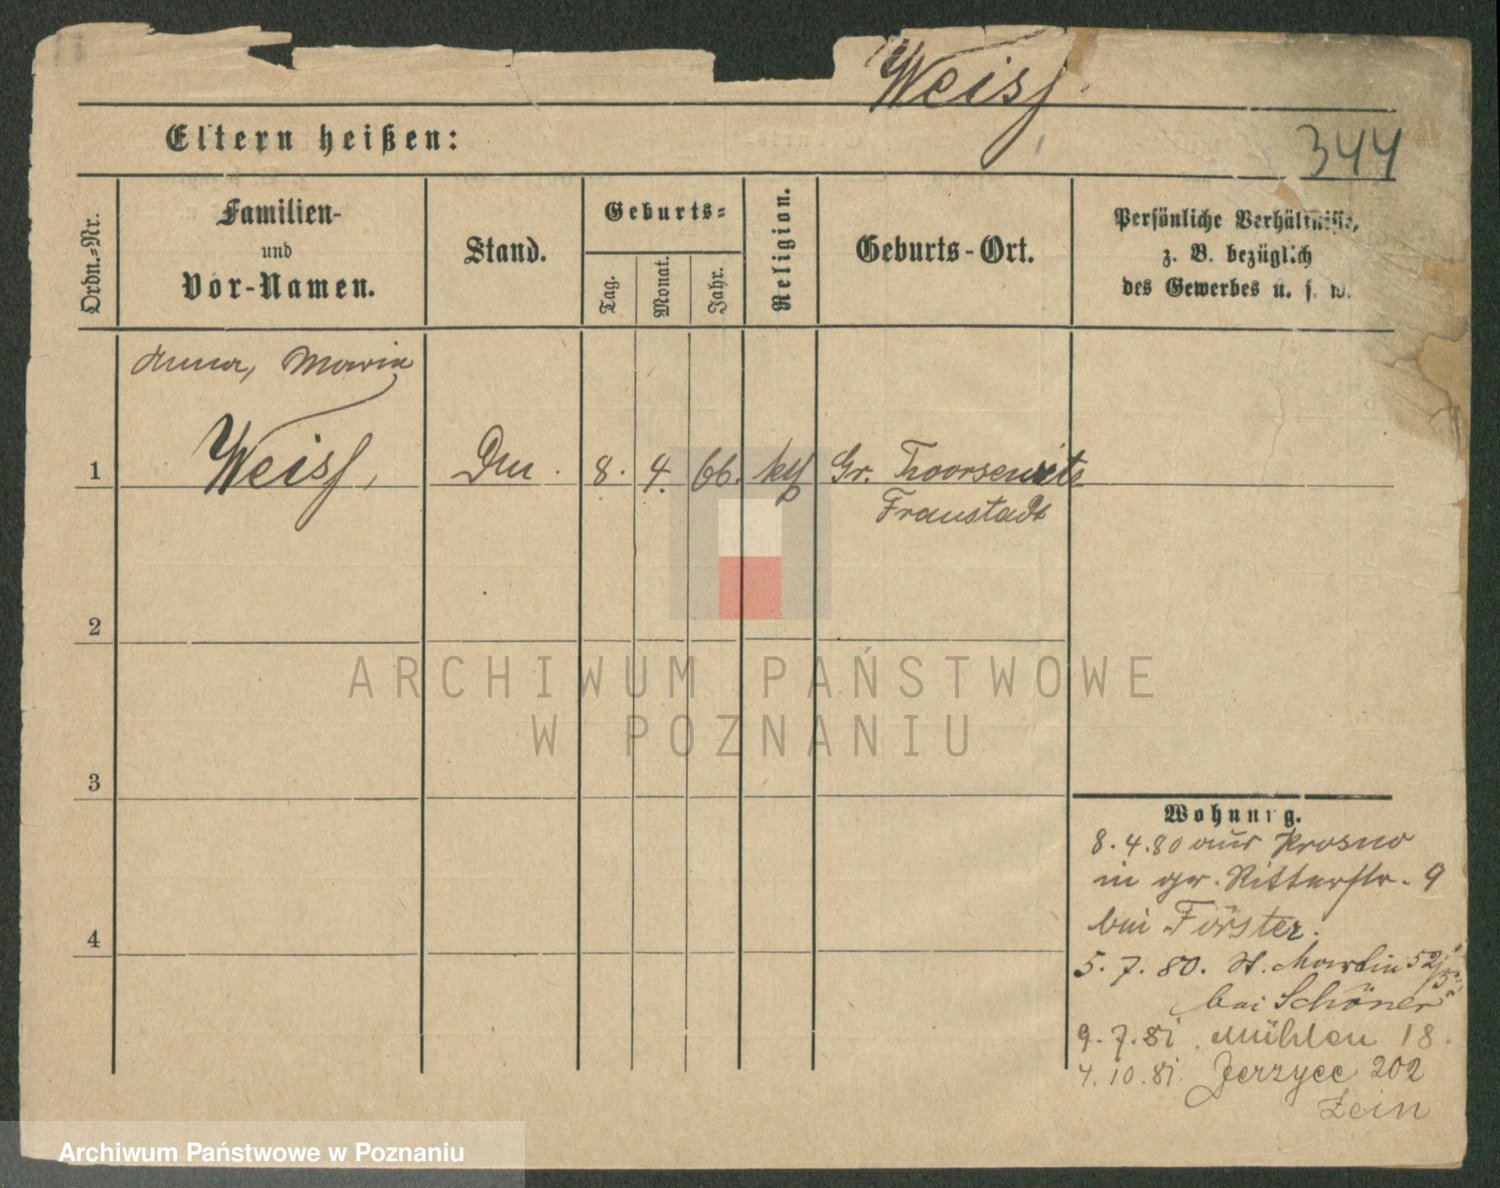 Weiß.
Eltern heißen:
344
Ordn.-Nr.
Familien-
und
Vor-Namen.
Stand.
Geburts-
Tag.
Monat.
Jahr.
Religion.
Geburts-Ort.
Persönliche Verhältnisse,
z. B. bezüglich
des Gewerbes u. s. w.
Anna, Maria
1 Weiß, 8. 4. 66. Gr.
Fraustadt
2
3
4
Wohnung.
8.4.80 aus Krosno
in gr. Ritterstr. 9
bei Förster.
5.7.80. St. Martin 52/
bei Schöner
9.7.81. Mühlen 18.
4.10.81. Jerzyce 202
ARCHIWUM PAŃSTWOWE
W POZNANIU
Archiwum Państwowe w Poznaniu